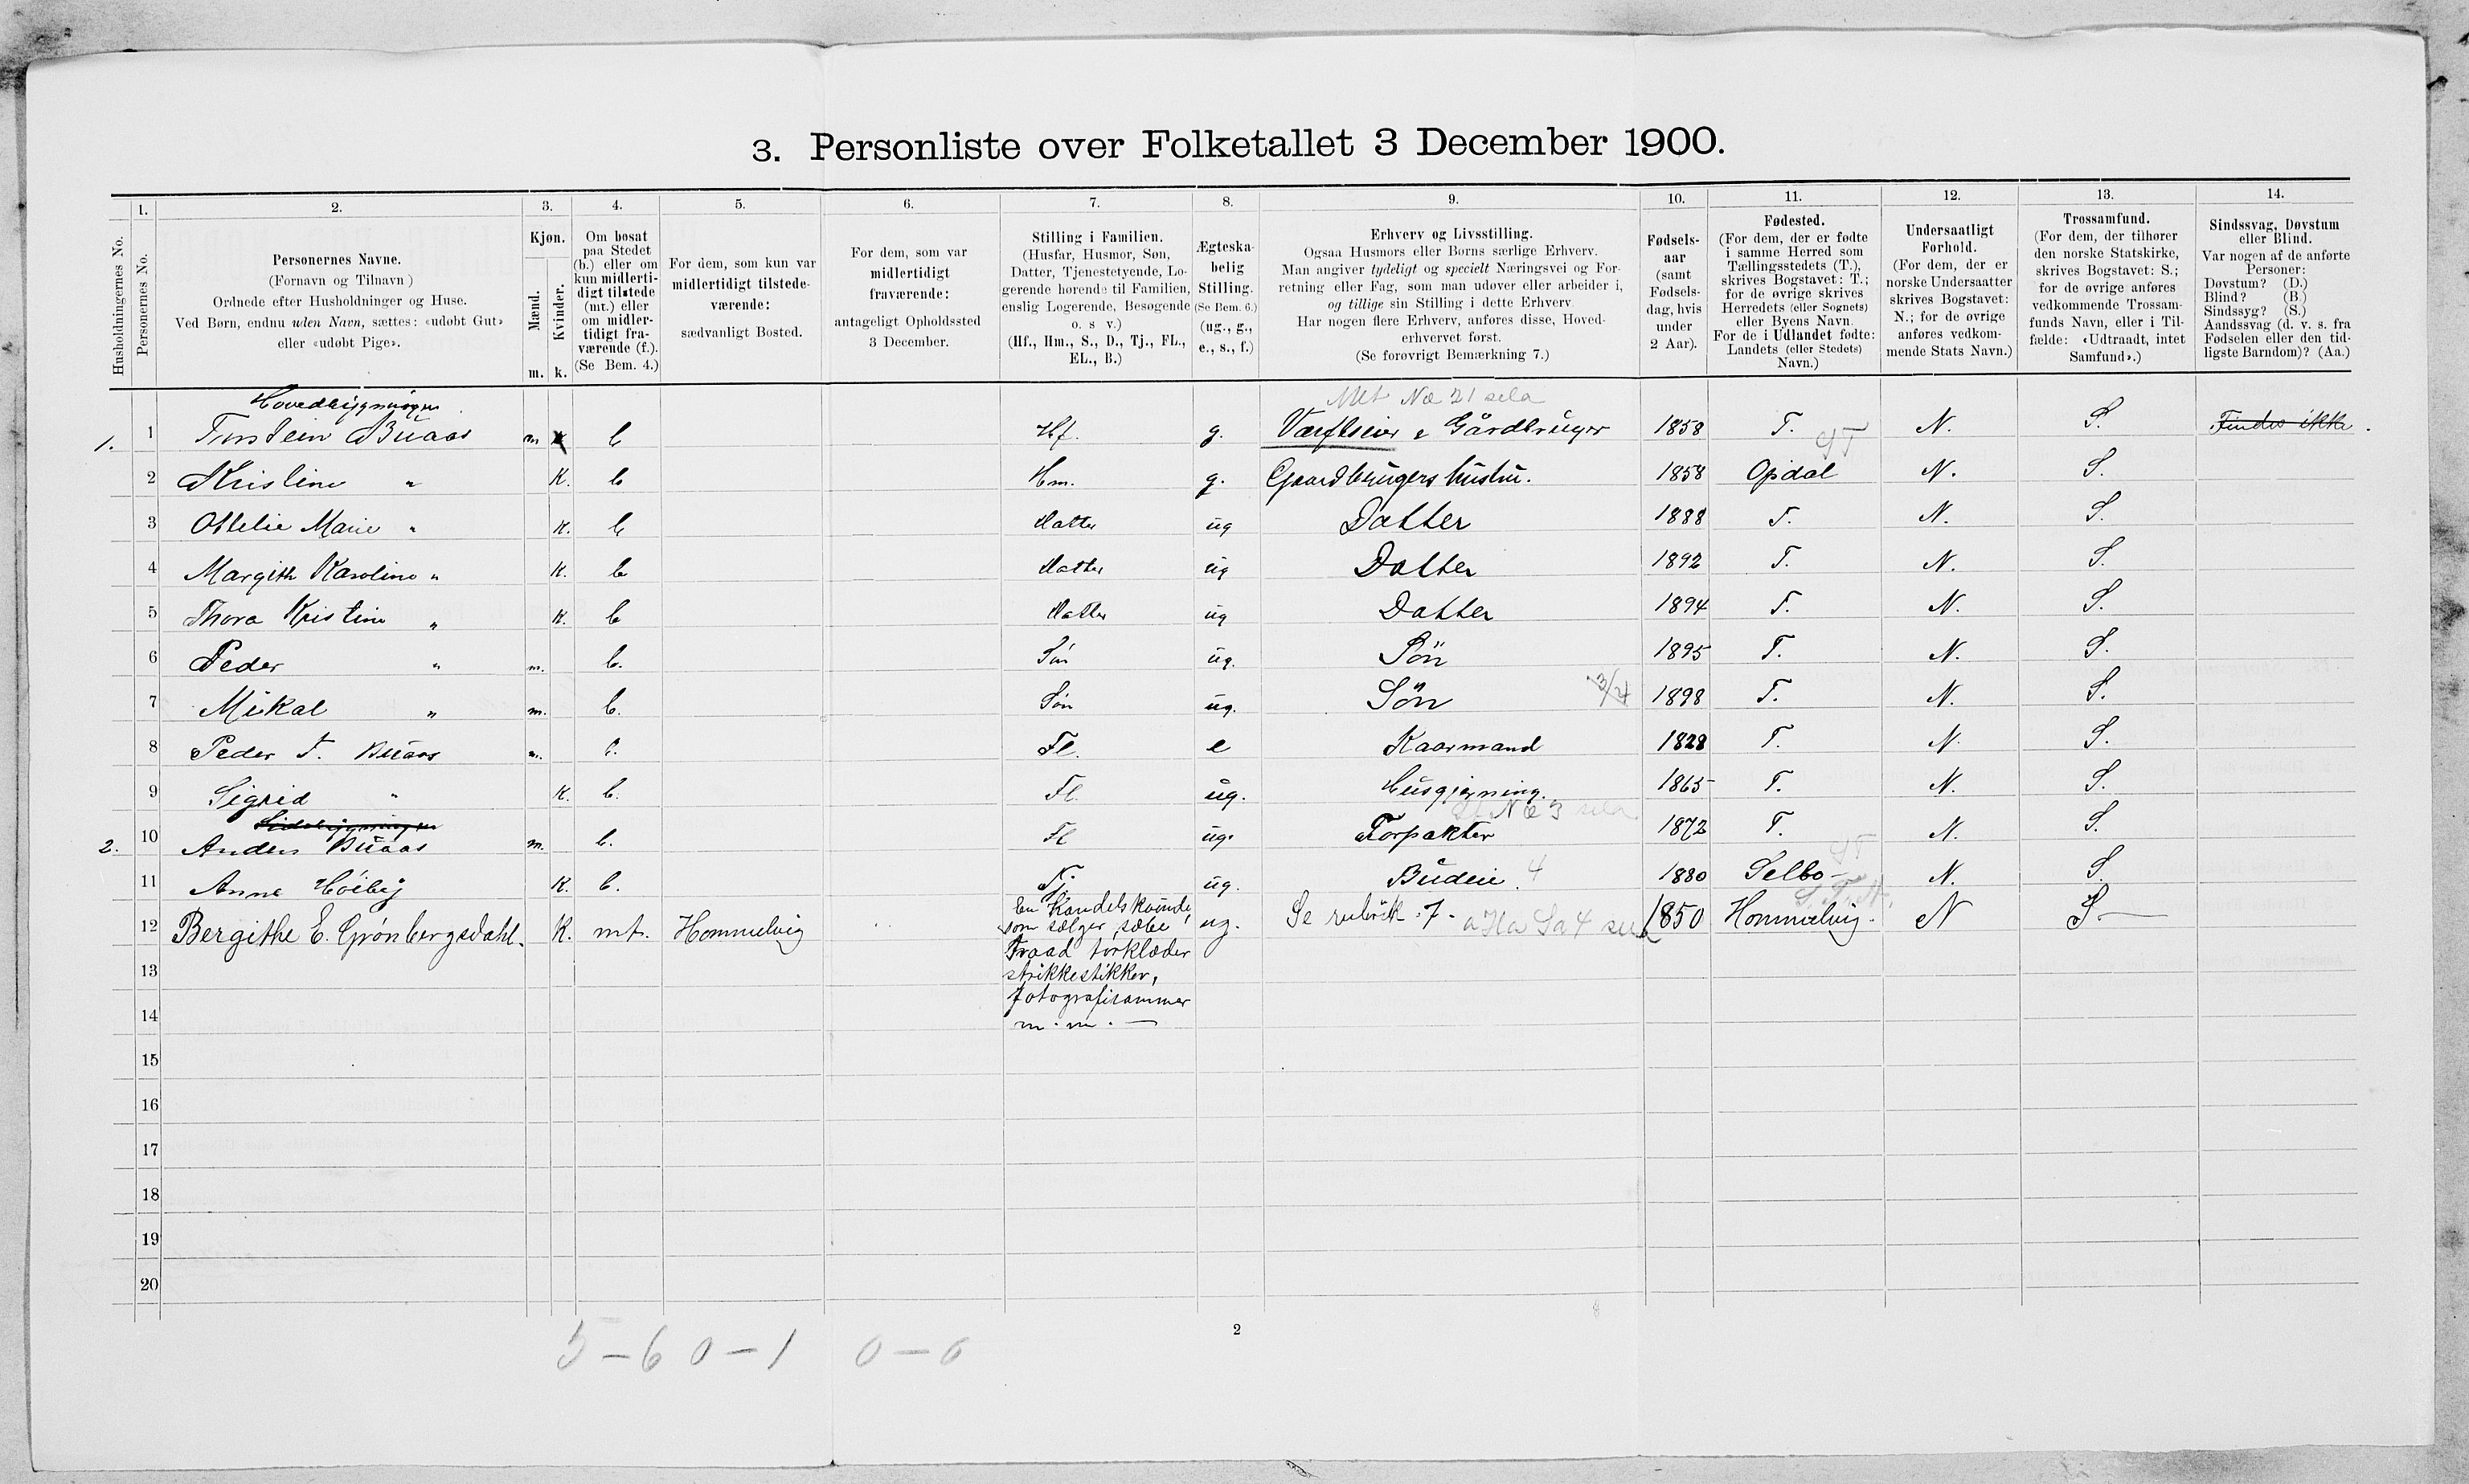 3. Personliste over Folketallet 3 December 1900.
Husholdningernes No.
1. Personernes No.
2. Personernes Navne.
(Fornavn og Tilnavn)
Ordnede efter Husholdninger og Huse.
Ved Børn, endnu uden Navn, sættes: «udøbt Gut»
eller «udøbt Pige».
3. Kjøn.
Mænd. m.
Kvinder. k.
4. Om bosat
paa Stedet
(b.) eller om
kun midlerti-
digt tilstede
(mt.) eller
om midler-
tidigt fra-
værende (f.).
(Se Bem. 4.)
5. For dem, som kun var
midlertidigt tilstede-
værende:
sædvanligt Bosted.
6. For dem, som var
midlertidigt
fraværende:
antageligt Opholdssted
3 December.
7. Stilling i Familien.
(Husfar, Husmor, Søn,
Datter, Tjenestetyende, Lo-
gerende hørende til Familien,
enslig Logerende, Besøgende
o. s v.)
(Hf., Hm., S., D., Tj., FL.,
EL., B.)
8. Ægteska-
belig
Stilling.
(Se Bem. 6.)
(ug., g.,
e., s., f.)
9. Erhverv og Livsstilling.
Ogsaa Husmors eller Børns særlige Erhverv.
Man angiver tydeligt og specielt Næringsvei og For-
retning eller Fag, som man udøver eller arbeider i,
og tillige sin Stilling i dette Erhverv.
Har nogen flere Erhverv, anføres disse, Hoved-
erhvervet først.
(Se forøvrigt Bemærkning 7.)
10. Fødsels-
aar
(samt
Fødsels-
dag, hvis
under
2 Aar).
11. Fødested.
(For dem, der er fødte
i samme Herred som
Tællingsstedets (T.),
skrives Bogstavet: T.;
for de øvrige skrives
Herredets (eller Sognets)
eller Byens Navn.
For de i Udlandet fødte:
Landets (eller Stedets)
Navn.)
12. Undersaatligt
Forhold.
(For dem, der er
norske Undersaatter
skrives Bogstavet:
N.; for de øvrige
anføres vedkom-
mende Stats Navn.)
13. Trossamfund.
(For dem, der tilhører
den norske Statskirke,
skrives Bogstavet: S.;
for de øvrige anføres
vedkommende Trossam-
funds Navn, eller i Til-
fælde: «Udtraadt, intet
Samfund».)
14. Sindssvag, Døvstum
eller Blind.
Var nogen af de anførte
Personer:
Døvstum? (D.)
Blind? (B.)
Sindssyg? (S.)
Aandssvag (d. v. s. fra
Fødselen eller den tid-
ligste Barndom)? (Aa.)
Hovedbygningen
1. 1 Buaas m b Hf. g. & Gårdbruger 1858 T. N. S. Findes ikke.
2 Kristine " K. b Hm. g. Gaardbrugers hustru. 1858 Opdal N. S.
3 Marie " K. b Datter ug Datter 1888 T. N. S.
4 Margith Karoline " K. b Datter ug Datter 1892 T. N. S.
5 Thora Kristine " K. b Datter ug Datter 1894 T. N. S.
6 Peder " m. b. Søn ug. Søn 1895 T. N. S.
7 Mikal " m. b. Søn ug. Søn 3/4 1898 T. N. S.
8 Peder T. Buaas m. b. Fl. e Kaarmand 1828 T. N. S.
9 Sigrid " K. b. Fl. ug. Husgjerning. 1865 T. N. S.
Sidebygningen
2. 10 Anders Buaas m. b. Fl ug. Forpakter 1872 T. N. S.
11 Anne Høiby K. b. Tj. ug. Budeie 4 1880 Selbo N. S.
12 Bergithe E. Grønbergsdahl. K. mt. Hommelvig En Handelskvinde, ug. Se rubrik 7. 1850 Hommelvig. N S
som sælger sæbe
Traad tørklæder
13 strikkestikker,
fotografirammer
14 m. m.
15
16
17
18
19
20
2
5 – 6 0 – 1 0 – 0